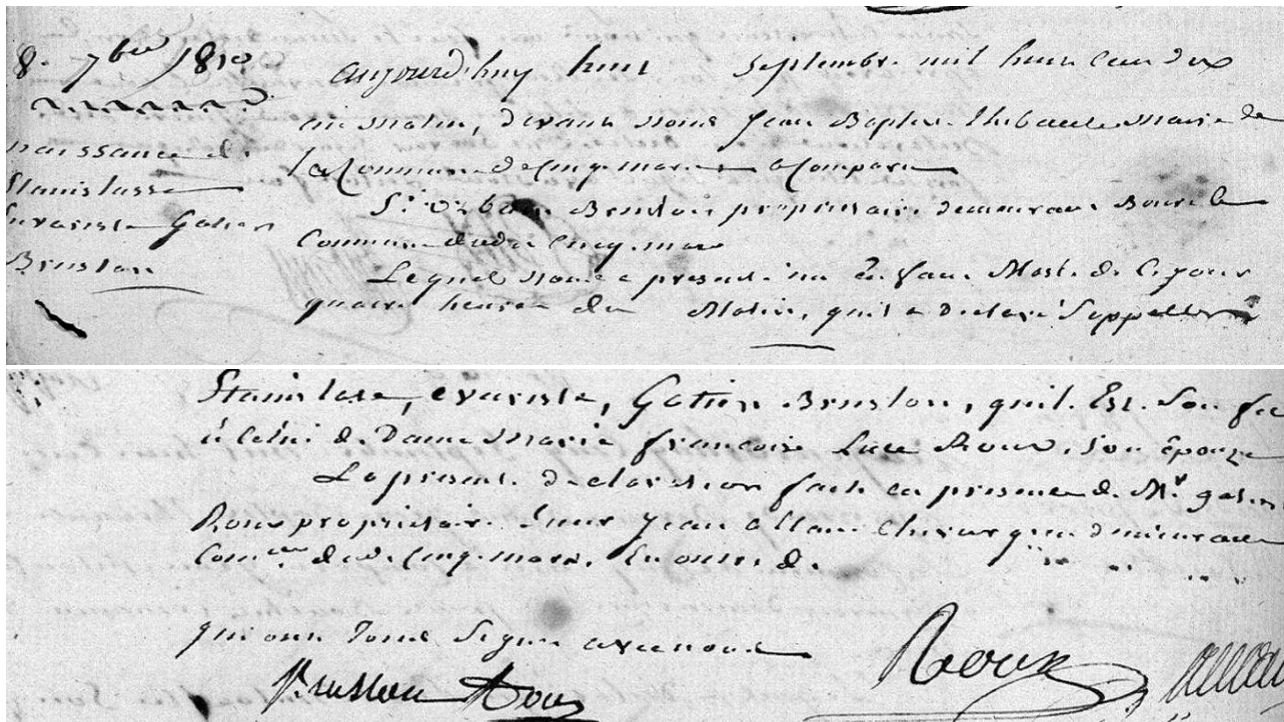 8. 7bre 1810
naissance de
Stanislasse
Evariste Gatien
Bruslon
aujourd'huy huit Septembre mil huit cent dix
au matin, devant nous Jean Baptiste Thibault Maire de
la Commune de Cinq-mars a Comparu
Sr. Urbain Bruslon proprietaire demeurant Bourg de
Commune dudit Cinq-mars
Lequel nous a presenté un Enfant né de ce jour
quatre heures du Matin, qu'il a déclaré S'appeller
Stanislase, evariste, Gatien Bruslon, qu'il Est Son fils
à celui de Dame Marie françoise Luce Roux, Son épouze
La presente déclaration faite en presence de Mr. gatien
Roux proprietaire Sieur Jean allain Chirurgien demeurant
Comune de Cinq-mars. En outre de
qui ont Tous Signé avec nous
Bruslon Roux
Roux